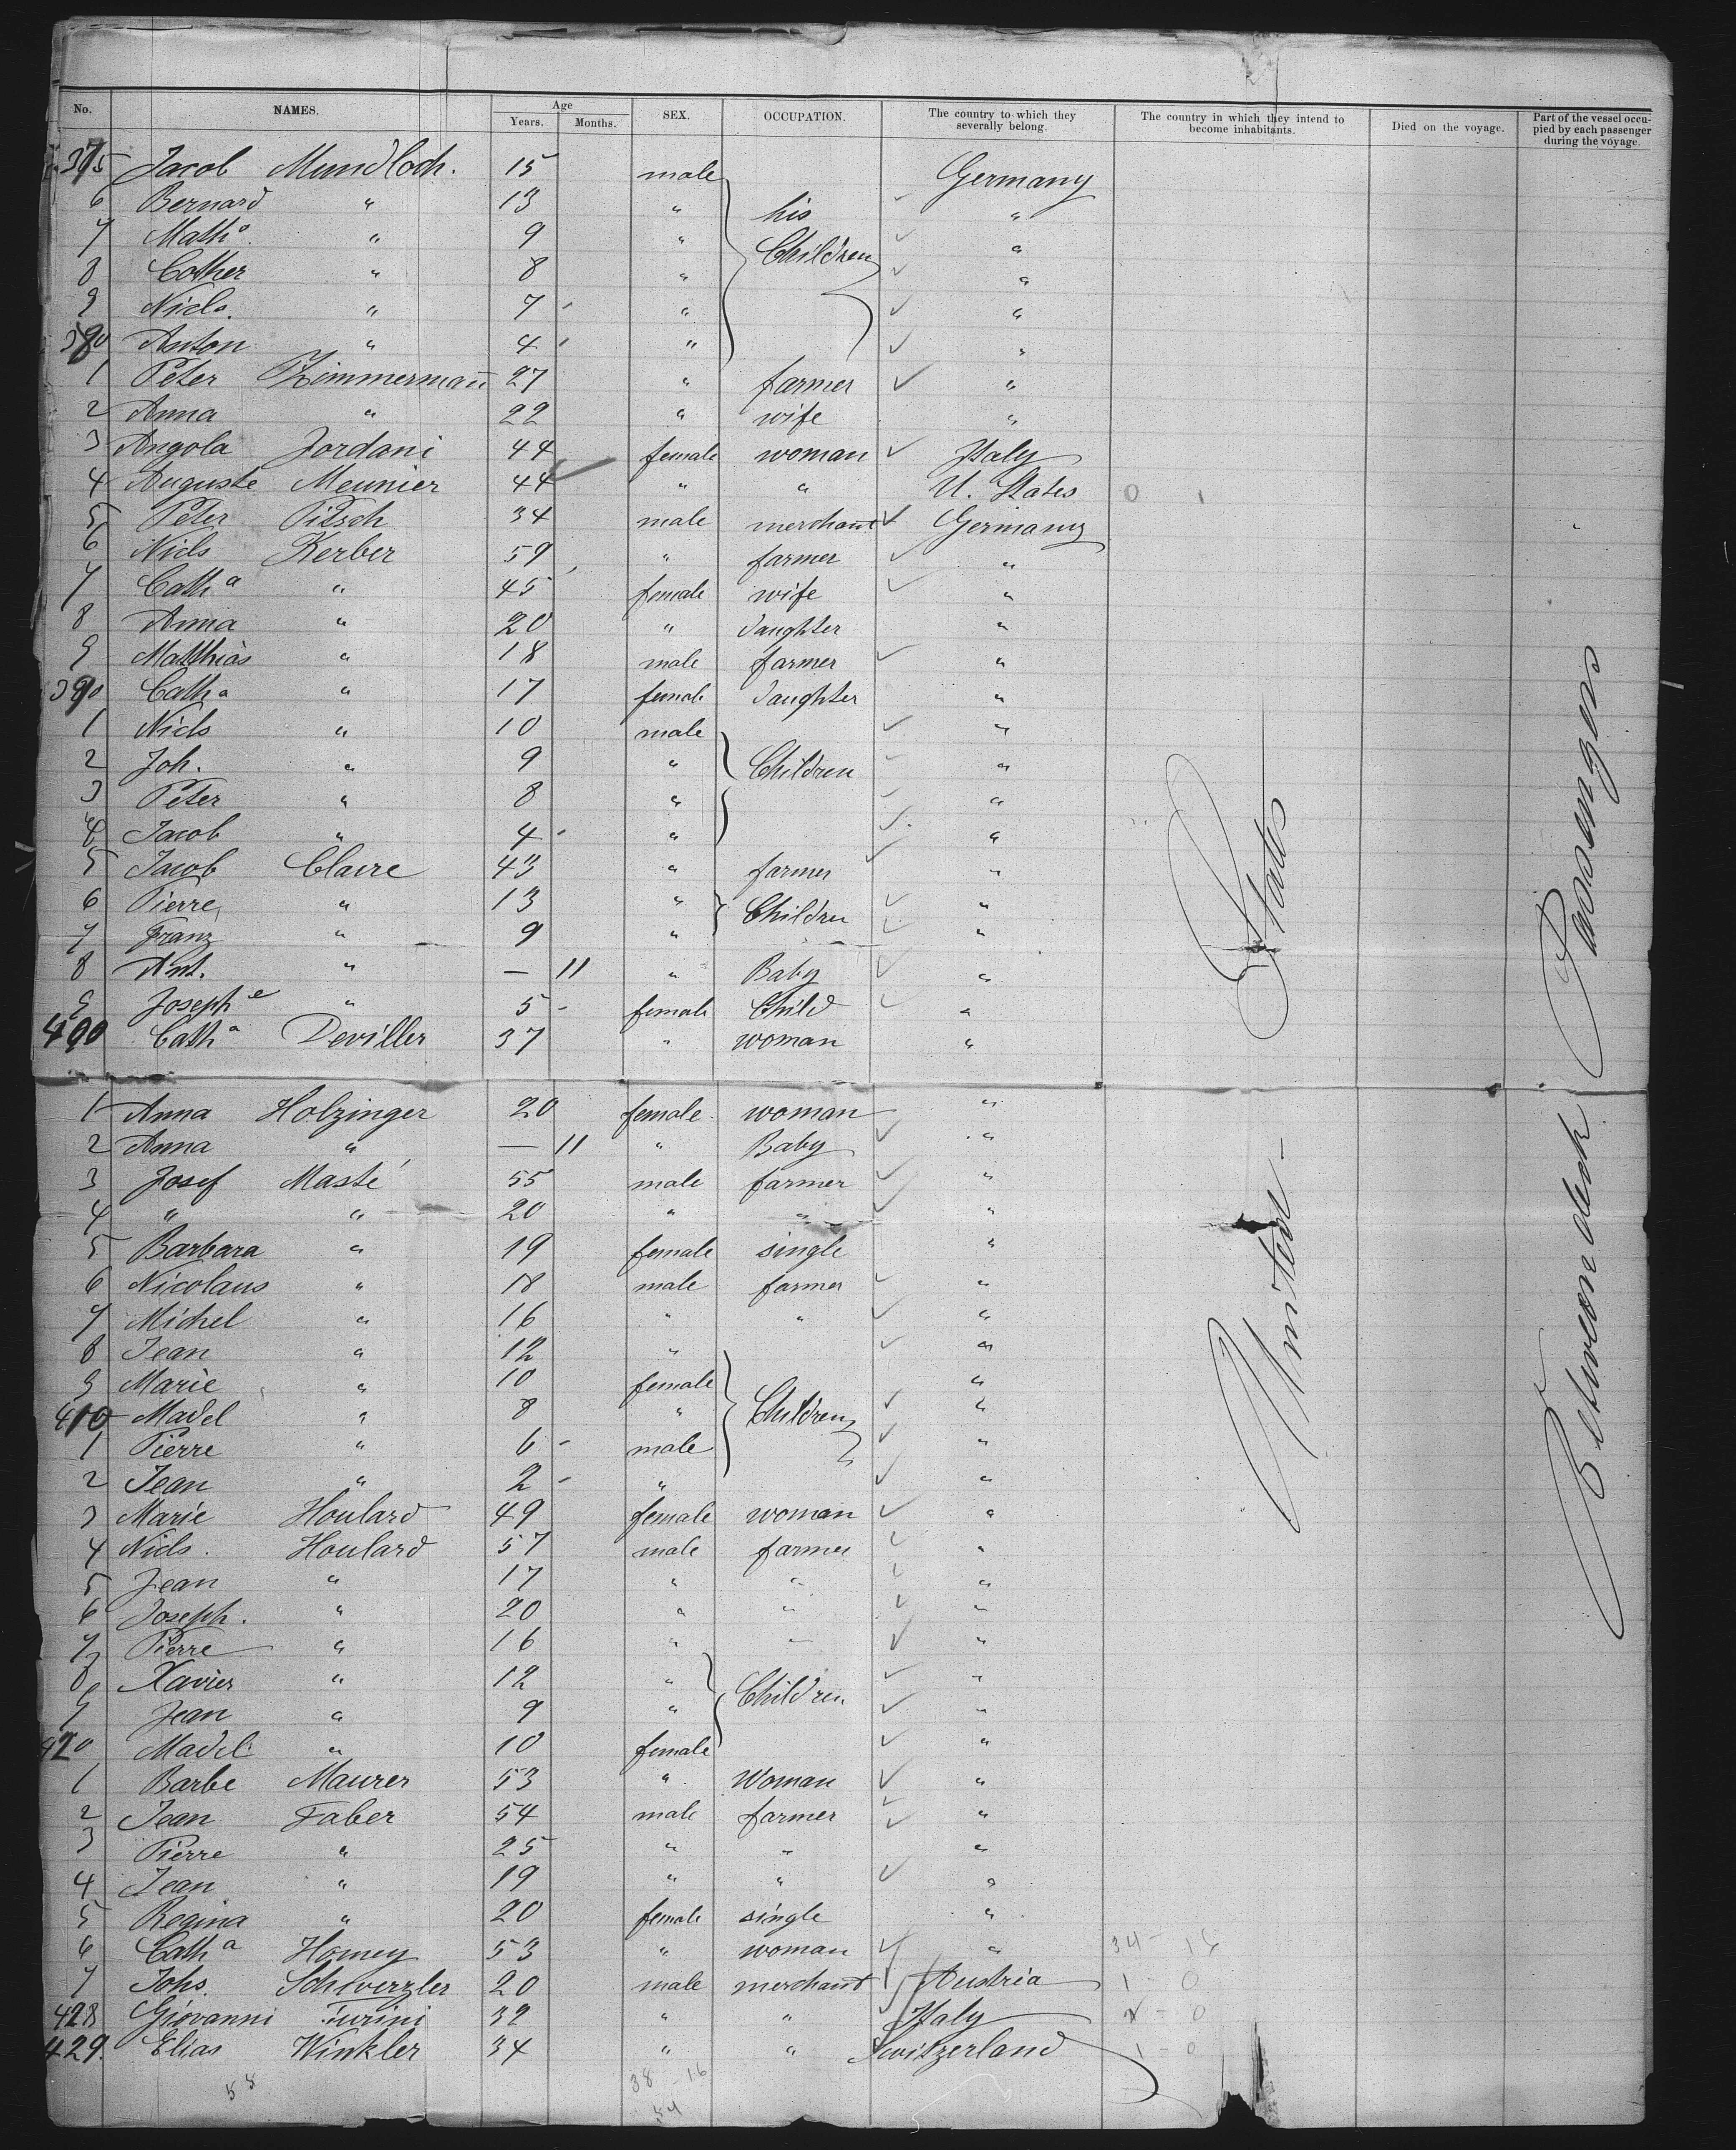 No. NAMES. Age Years. Months. SEX. OCCUPATION. The country to which they severally belong. The country in which they intend to become inhabitants. Died on the voyage. Part of the vessel occupied by each passenger during the voyage.
375 Jacob Mundloch. 15 male Germany
6 Bernard " 13 " his "
7 Math a. " 9 " Children "
8 Cather " 8 " "
9 Nicls. " 7 " "
380 Anton " 4 " "
1 Peter Zimmermann 27 " farmer "
2 Anna " 22 " wife "
3 Angola Jordani 44 female woman Italy
4 Auguste Meunier 44 " " U. States 0 1
5 Peter Pitsch 34 male merchant Germany
6 Nicls Kerber 59 " farmer "
7 Cath a " 45 female wife "
8 Anna " 20 " daughter "
9 Matthias " 18 male farmer "
390 Cath a " 17 female daughter "
1 Nicls " 10 male "
2 Joh. " 9 " Children "
3 Peter " 8 " "
4 Jacob " 4 " "
5 Jacob Claire 43 " farmer "
6 Pierre " 13 " Children "
7 Franz " 9 " "
8 Ant. " — 11 " Baby "
9 Joseph e " 5 female Child "
400 Cath a Deviller 37 " woman "
1 Anna Holzinger 20 female woman "
2 Anna " — 11 " Baby "
3 Josef Masté 55 male farmer "
4 " " 20 " " "
5 Barbara " 19 female single "
6 Nicolaus " 18 male farmer "
7 Michel " 16 " " "
8 Jean " 12 " "
9 Marie " 10 female "
410 Madel " 8 " Children "
1 Pierre " 6 male "
2 Jean " 2 " "
3 Marie Houlard 49 female woman "
4 Nicls. Houlard 57 male farmer "
5 Jean " 17 " " "
6 Joseph. " 20 " " "
7 Pierre " 16 " " "
8 Xavier " 12 " "
9 Jean " 9 " Children "
420 Madel " 10 female "
1 Barbe Maurer 53 " Woman "
2 Jean Faber 54 male farmer "
3 Pierre " 25 " " "
4 Jean " 19 " " "
5 Regina " 20 female single "
6 Cath a Homey 53 " woman "
7 Johs. Schwerzler 20 male merchant Austria 1 - 0
428 Giovanni 32 " " Italy
429. Elias Winkler 34 " " Switzerland 1 - 0
38 - 16
54
United States
Between deck Passengers